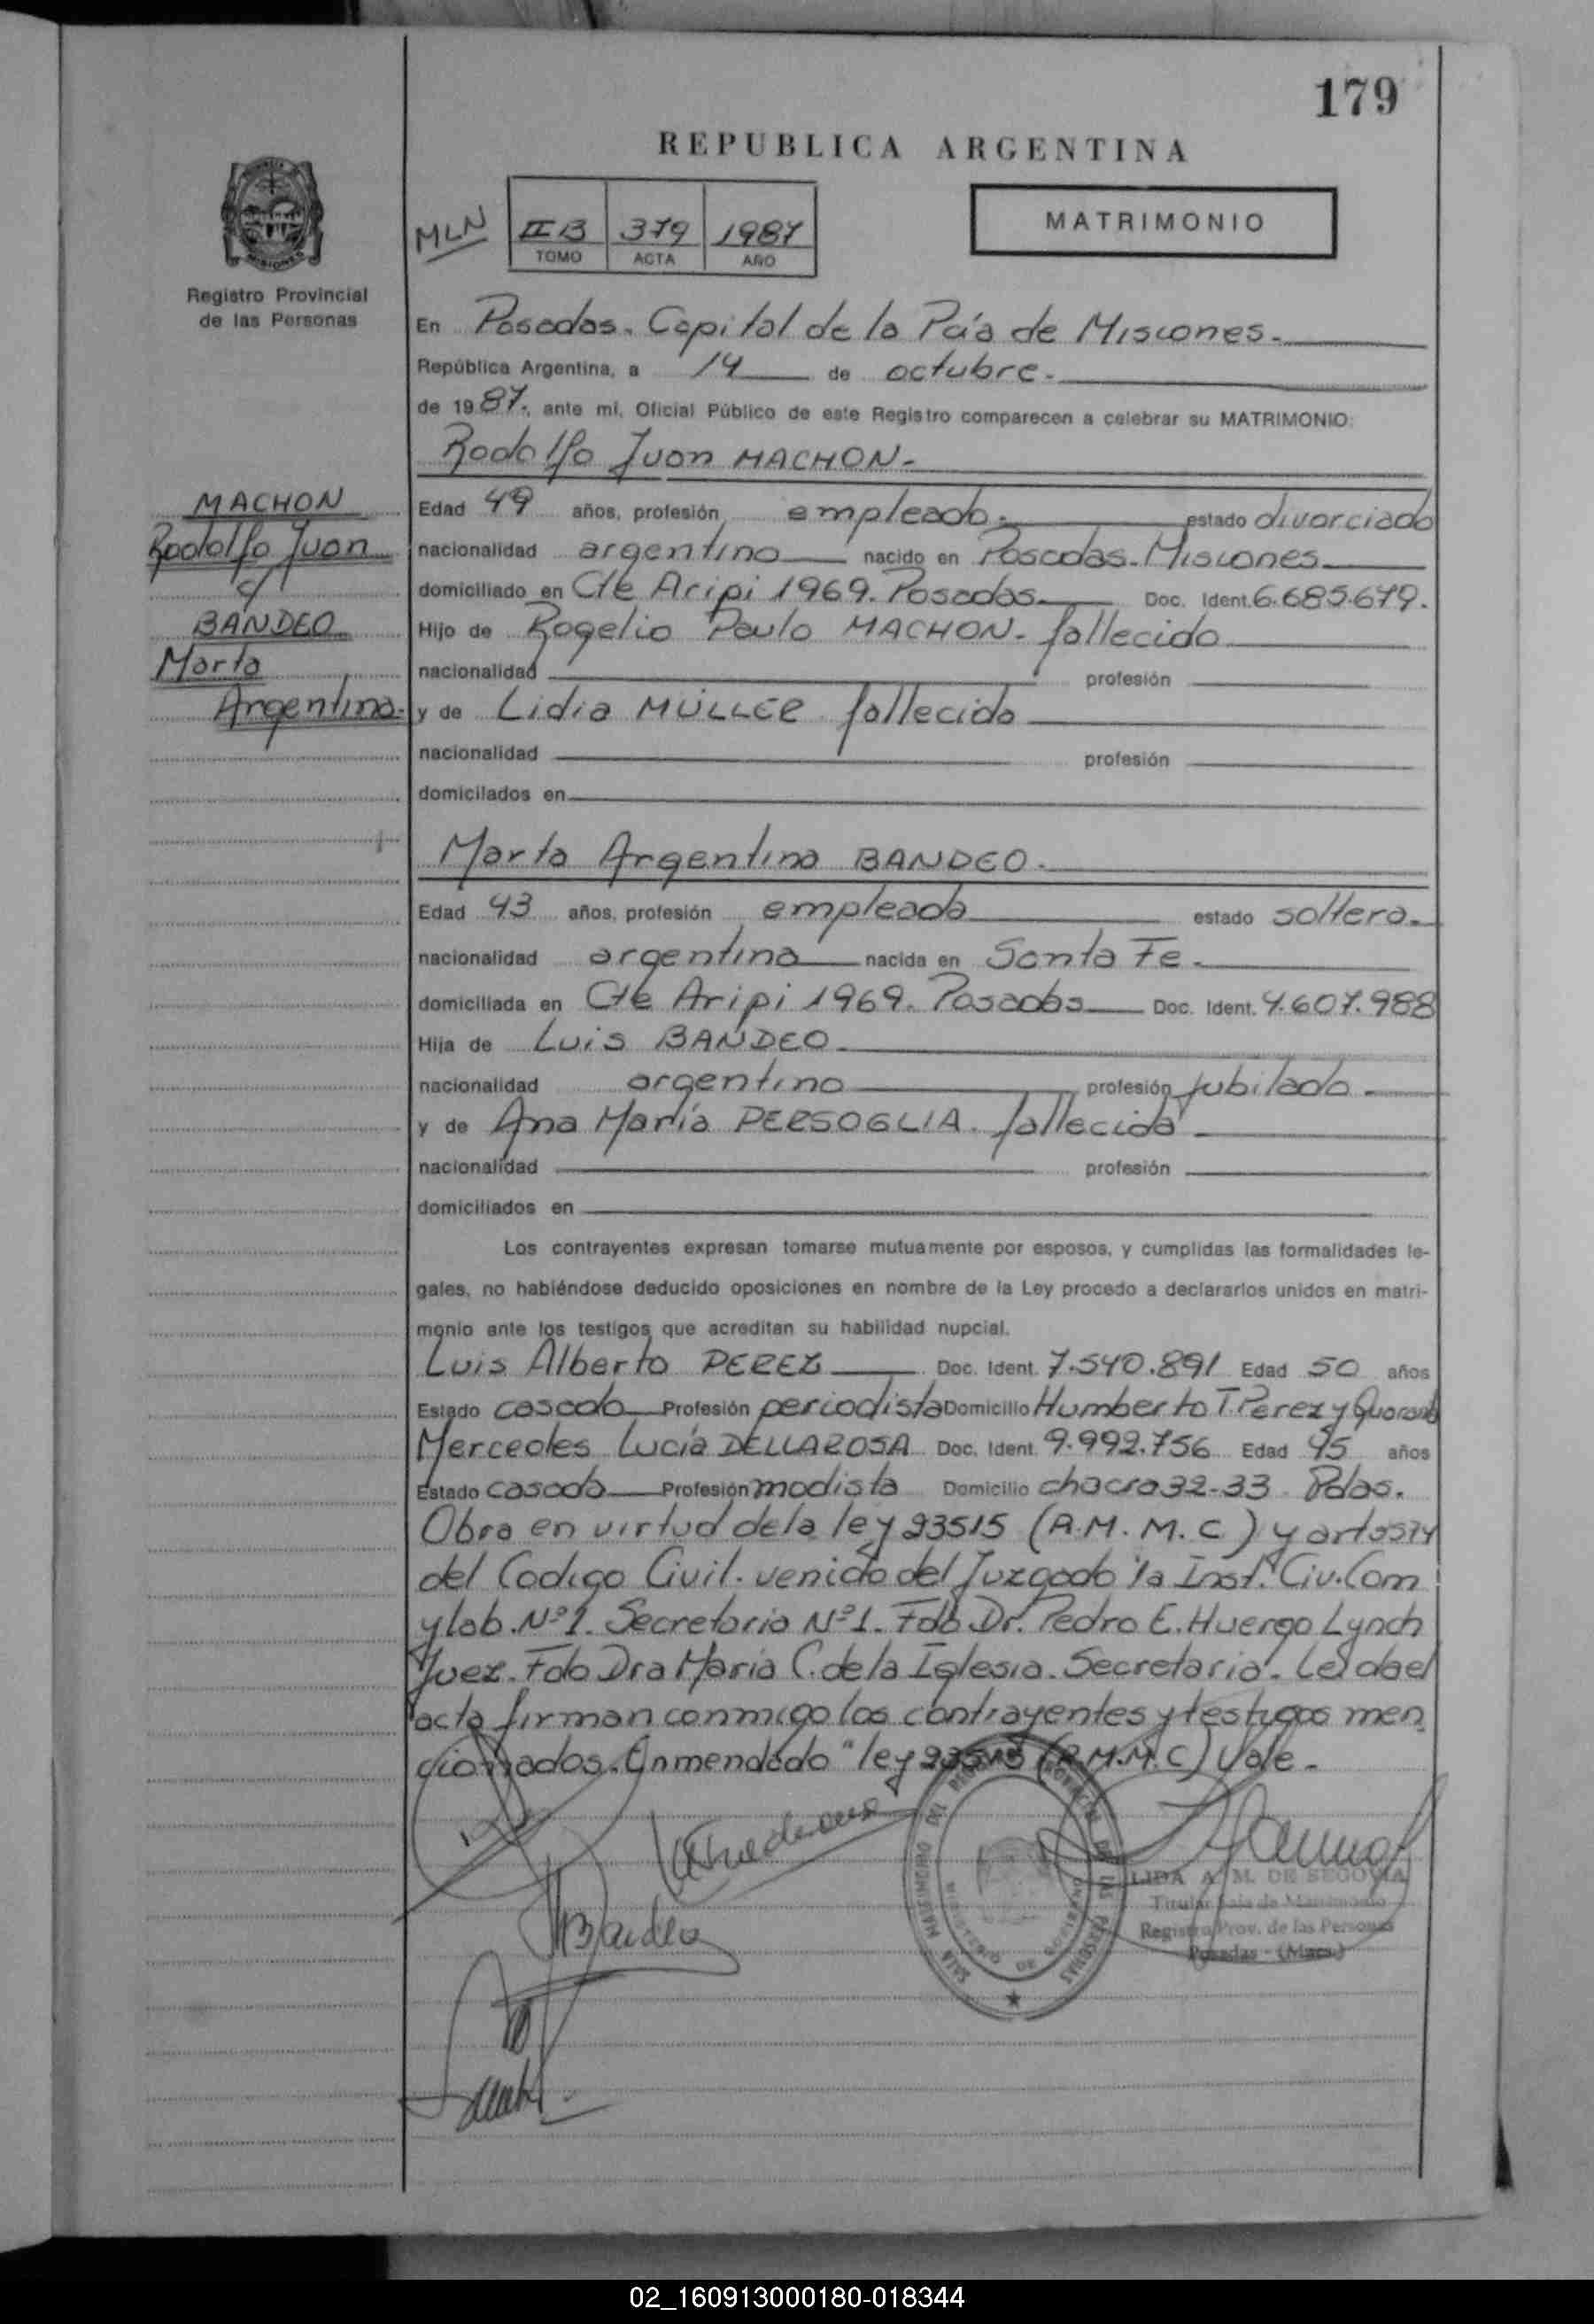 179
REPUBLICA ARGENTINA
MLN
II B 379 1987
TOMO ACTA AÑO
MATRIMONIO
MISIONES
Registro Provincial
de las Personas
En Posadas. Capital de la Pcia de Misiones.
República Argentina, a 14 de octubre.
de 1987, ante mi, Oficial Público de este Registro comparecen a celebrar su MATRIMONIO:
Rodolfo Juan MACHON.
MACHON
Rodolfo Juan
c/
BANDEO
Marta
Argentina.
Edad 49 años, profesión empleado. estado divorciado
nacionalidad argentino nacido en Posadas. Misiones
domiciliado en Cte Aripi 1969. Posadas Doc. Ident. 6.685.679.
Hijo de Rogelio Paulo MACHON. fallecido
nacionalidad profesión
y de Lidia MÜLLER fallecida
nacionalidad profesión
domicilados en
Marta Argentina BANDEO.
Edad 43 años, profesión empleada estado soltera.
nacionalidad argentina nacida en Santa Fe.
domiciliada en Cte Aripi 1969. Posadas Doc. Ident. 4.607.988
Hija de Luis BANDEO.
nacionalidad argentino profesión jubilado.
y de Ana María PERSOGLIA. fallecida
nacionalidad profesión
domiciliados en
Los contrayentes expresan tomarse mutuamente por esposos, y cumplidas las formalidades le-
gales, no habiéndose deducido oposiciones en nombre de la Ley procedo a declararlos unidos en matri-
monio ante los testigos que acreditan su habilidad nupcial.
Luis Alberto PEREZ Doc. Ident. 7.540.891 Edad 50 años
Estado casado Profesión periodista Domicilio Humberto T. Perez y Quaranta
Mercedes Lucía DELLAROSA Doc. Ident. 9.992.756 Edad 45 años
Estado casada Profesión modista Domicilio chacra 32-33 Pdas.
Obra en virtud de la ley 23515 (A.M.M.C) y
del Codigo Civil. venido del Juzgado 1a Inst. Civ. Com
y lab. Nº 1. Secretaria Nº 1. Fdo Dr. Pedro E. Huergo Lynch
Juez. Fdo Dra María C. de la Iglesia. Secretaria. Leida el
acta firman conmigo los contrayentes y testigos men
cionados. Enmendado "ley 23515 (A.M.M.C) Vale.
MBandeo
SALA MATRIMONIO DEL REGISTRO PROVINCIAL DE LAS PERSONAS
MINISTERIO DE GOBIERNO
LIDA A. M. DE SEGOVIA
Titular Sala de Matrimonio
Registro Prov. de las Personas
Posadas - (Mnes.)
02_160913000180-018344